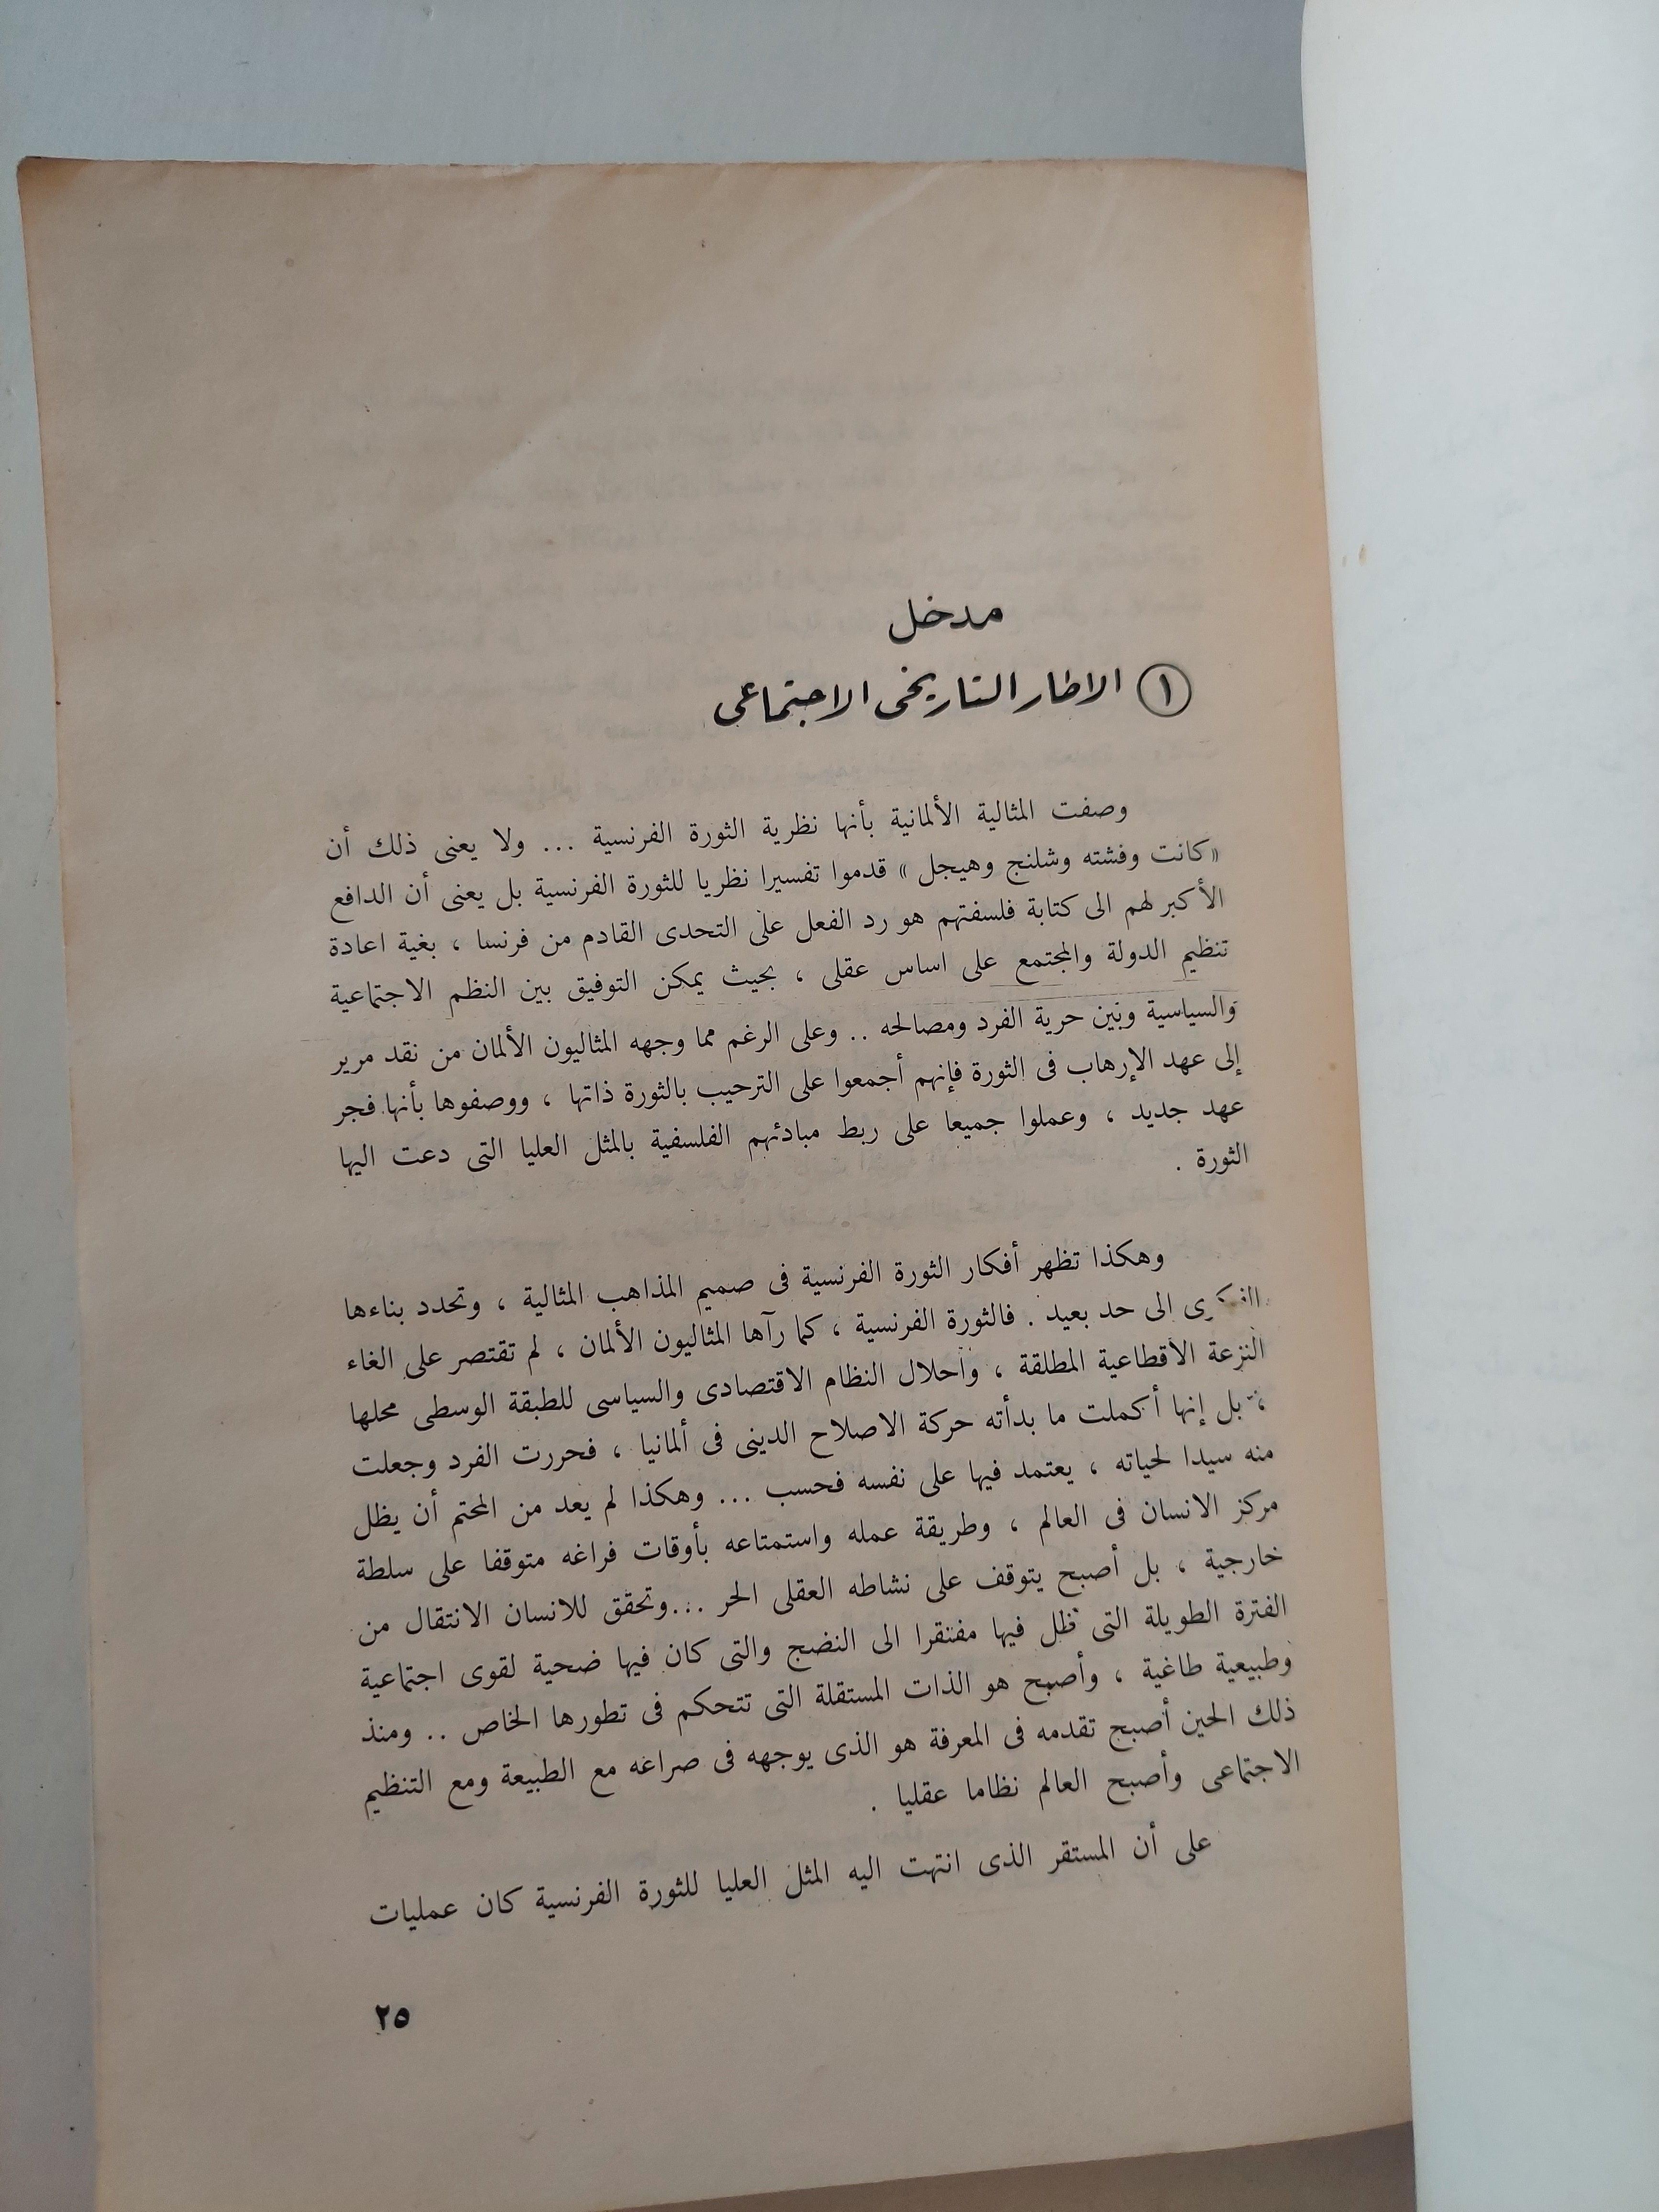 مدخل
١ الاطار التاريخى الاجتماعى
وصفت المثالية الألمانية بأنها نظرية الثورة الفرنسية ... ولا يعنى ذلك أن
«كانت وفشته وشلنج وهيجل» قدموا تفسيرا نظريا للثورة الفرنسية بل يعنى أن الدافع
الأكبر لهم الى كتابة فلسفتهم هو رد الفعل على التحدى القادم من فرنسا ، بغية اعادة
تنظيم الدولة والمجتمع على اساس عقلى ، بحيث يمكن التوفيق بين النظم الاجتماعية
والسياسية وبين حرية الفرد ومصالحه .. وعلى الرغم مما وجهه المثاليون الألمان من نقد مرير
إلى عهد الإرهاب فى الثورة فإنهم أجمعوا على الترحيب بالثورة ذاتها ، ووصفوها بأنها فجر
عهد جديد ، وعملوا جميعا على ربط مبادئهم الفلسفية بالمثل العليا التى دعت اليها
الثورة .
وهكذا تظهر أفكار الثورة الفرنسية فى صميم المذاهب المثالية ، وتحدد بناءها
الى حد بعيد . فالثورة الفرنسية ، كما رآها المثاليون الألمان ، لم تقتصر على الغاء
النزعة الاقطاعية المطلقة ، واحلال النظام الاقتصادى والسياسى للطبقة الوسطى محلها
، بل إنها أكملت ما بدأته حركة الاصلاح الدينى فى ألمانيا ، فحررت الفرد وجعلت
منه سيدا لحياته ، يعتمد فيها على نفسه فحسب ... وهكذا لم يعد من المحتم أن يظل
مركز الانسان فى العالم ، وطريقة عمله واستمتاعه بأوقات فراغه متوقفا على سلطة
خارجية ، بل أصبح يتوقف على نشاطه العقلى الحر ...وتحقق للانسان الانتقال من
الفترة الطويلة التى ظل فيها مفتقرا الى النضج والتى كان فيها ضحية لقوى اجتماعية
وطبيعية طاغية ، وأصبح هو الذات المستقلة التى تتحكم فى تطورها الخاص .. ومنذ
ذلك الحين أصبح تقدمه فى المعرفة هو الذى يوجهه فى صراعه مع الطبيعة ومع التنظيم
الاجتماعى وأصبح العالم نظاما عقليا .
على أن المستقر الذى انتهت اليه المثل العليا للثورة الفرنسية كان عمليات
٢٥